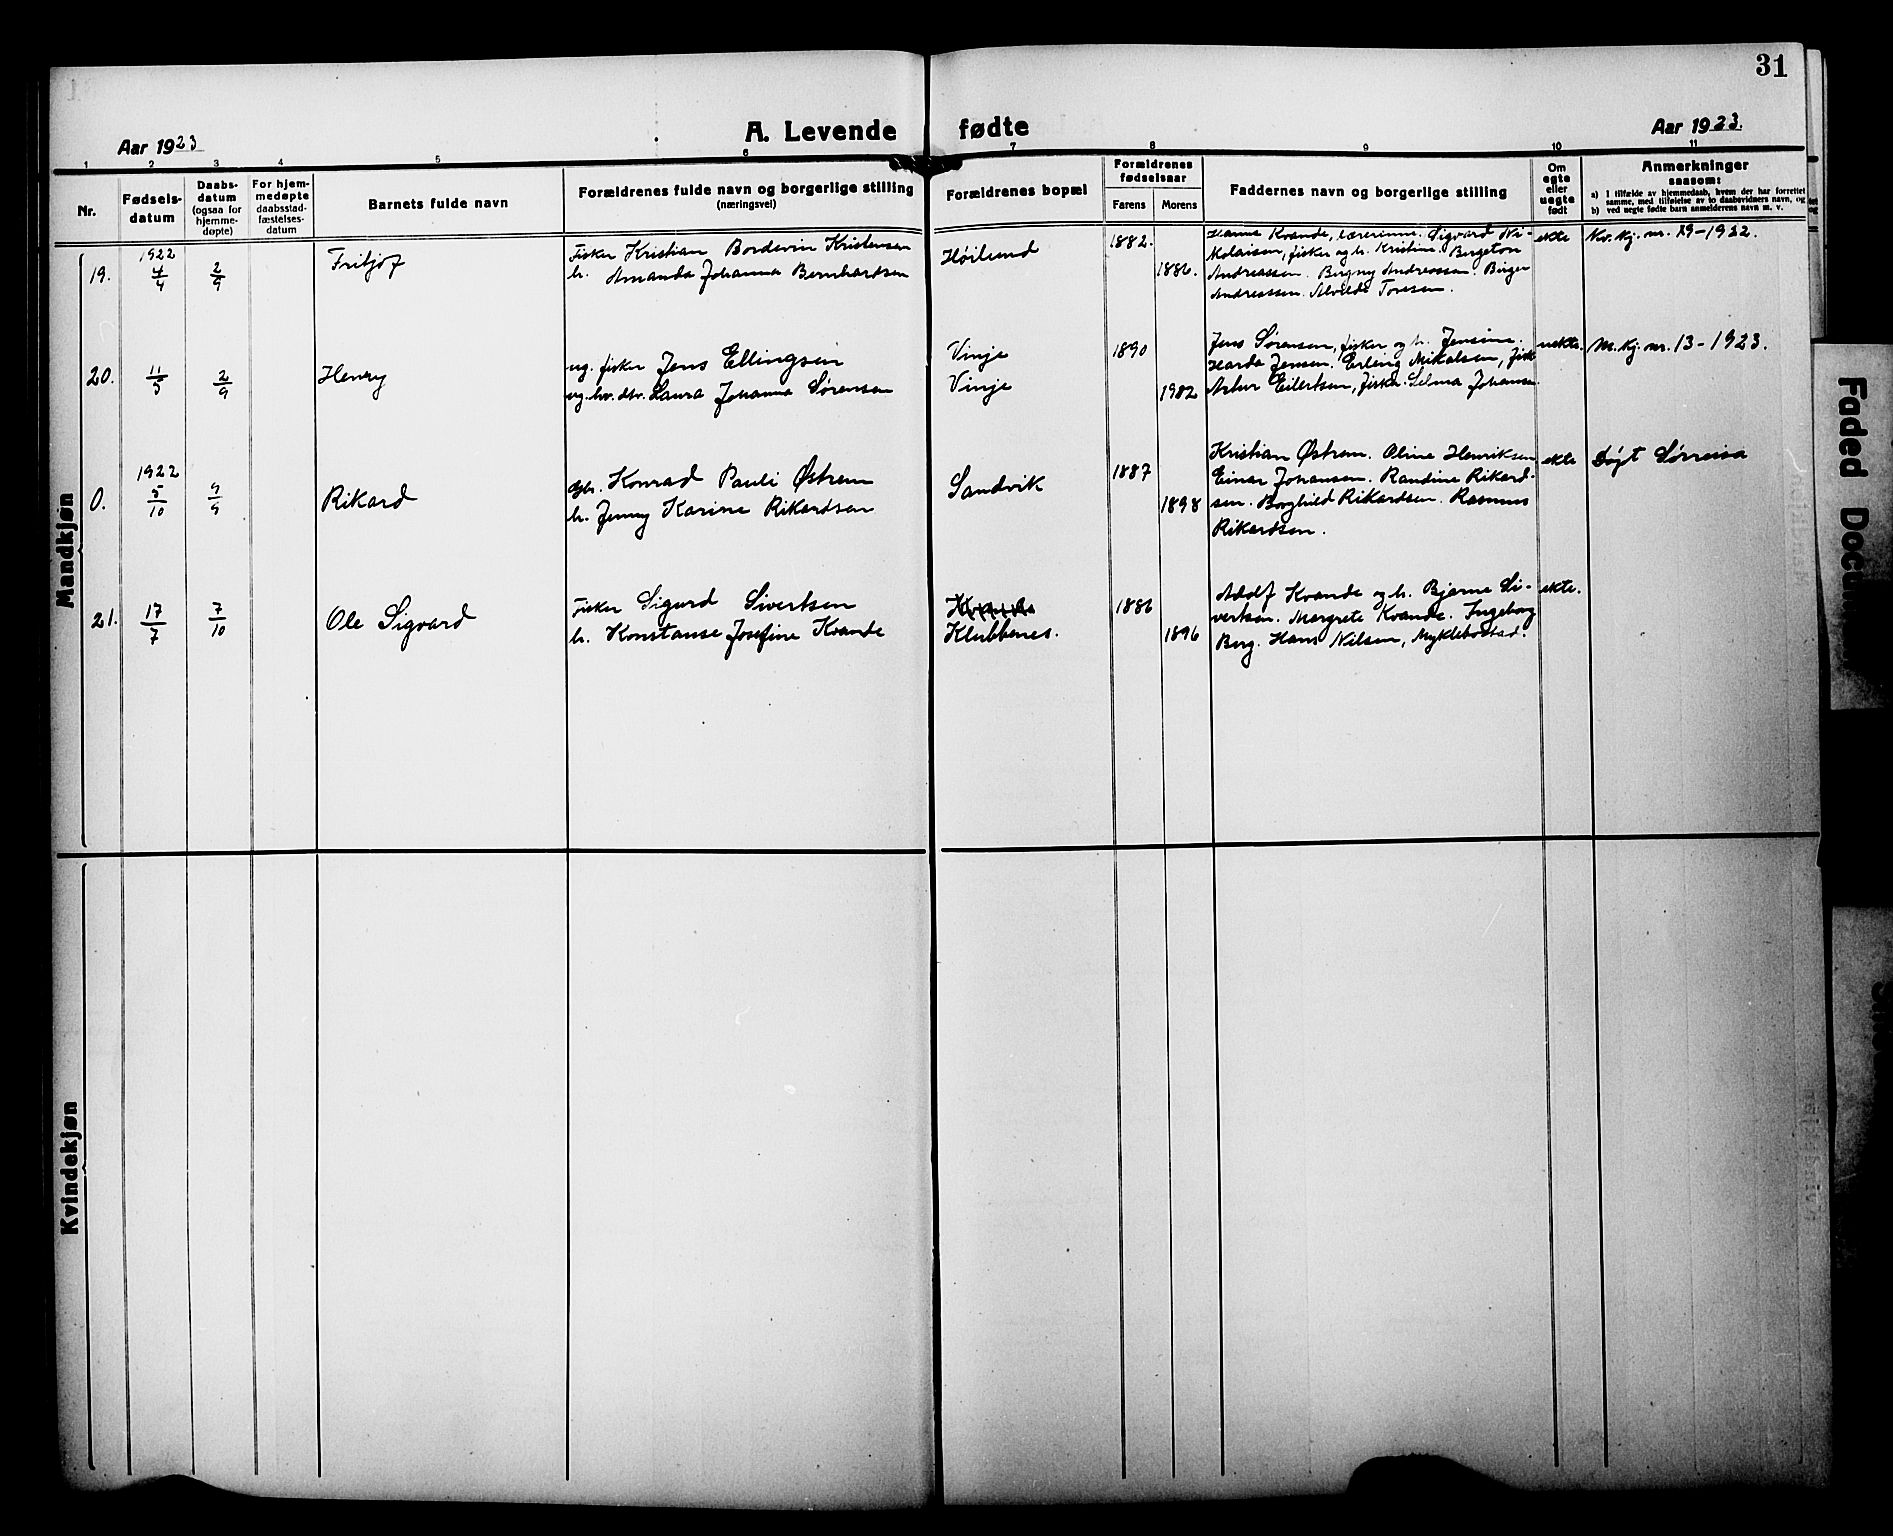 31
Aar 1923
A. Levende fødte
Aar 1923.
1 2 3 4 5 6 7 8 9 10 11
Nr.
Fødsels-
datum
Daabs-
datum
(ogsaa for
hjemme-
døpte)
For hjem-
medøpte
daabsstad-
fæstelses-
datum
Barnets fulde navn
Forældrenes fulde navn og borgerlige stilling
(næringsvei)
Forældrenes bopæl
Forældrenes
fødselsaar
Farens
Morens
Faddernes navn og borgerlige stilling
Om
egte
eller
uegte
født
Anmerkninger
saasom:
a) I tilfælde av hjemmedaab, hvem der har forrettet
samme, med tilføielse av to daabsvidners navn, og
b) ved uegte fødte barn anmelderens navn m. v.
Mandkjøn
19.
1922
4/4
2/9
Fritjof
Fisker Kristian Bordevin Kristensen
h. Amanda Johanna Bernhardsen
Höilund
1882.
1886.
Hanna Kvande, lærerinne. Sigvard Ni-
kolaisen, fisker og h. Kristine. Bergeton
Andreassen. Bergny Andreassen. Birger
Andreassen. Alvilde Toresen.
ekte
Kv. kj. nr. 19-1922.
20.
11/5
2/9
Henry
ug. fisker Jens Ellingsen
ug. hv. dtr. Laura Johanna Sørensen
Vinje
Vinje
1890
1982
Jens Sørensen, fisker og h. Jensine.
Harda Jensen. Erling Mikalsen, fisk
Artur Eilertsen, fisker. Selma Johansen.
uekte.
M. kj. nr. 13-1923.
0.
1922
5/10
9/9
Rikard
gbr. Konrad Pauli Østrem
h. Jenny Karine Rikardsen
Sandvik
1887
1898
Kristian Østrem. Oline Henriksen
Einar Johansen. Randine Rikard-
sen. Borghild Rikardsen. Rasmus
Rikardsen.
ekte
Døpt Sørreisa
21.
17/7
7/10
Ole Sigvard
Fisker Sigurd Sivertsen
h. Konstanse Josefine Kvande
Klubbenes.
1886
1896
Adolf Kvande og h. Bjarne Si-
vertsen. Margrete Kvande. Ingeborg
Berg. Hans Nilsen, Myklebostad.
ekte.
Kvindekjøn
Faded Docum